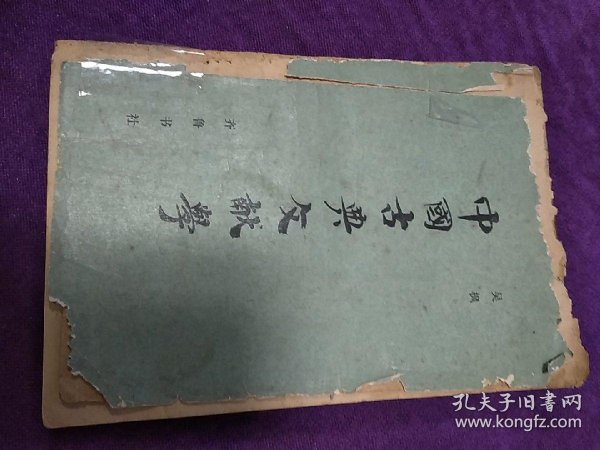 中國古典文献學
吴枫
齐鲁书社
孔夫子旧書网
www.kongfz.com